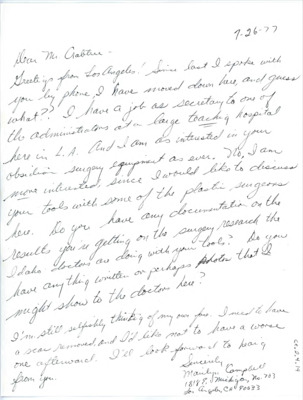 9-26-77
Dear Mr. Crabtree -
Greetings from Los Angeles! Since last I spoke with
you by phone I have moved down here, and guess
what?? I have a job as secretary to one of
the administrators at a large teaching hospital
here in L.A. And I am as interested in your
obsidian surgery equipment as ever. No, I am
more interested since I would like to discuss
your tools with some of the plastic surgeons
here. Do you have any documentation on the
results you're getting on the surgery research the
Idaho doctors are doing with your tools? Do you
have anything written or perhaps photos that I
might show to the doctors here?
I'm still selfishly thinking of my own face. I need to have
a scar removed and I'd like not to have a worse
one afterward. I'll look forward to hearing
from you.
Sincerely
Marilyn Campbell
1818 E. Michigan, No. 723
Los Angeles Ca 90033